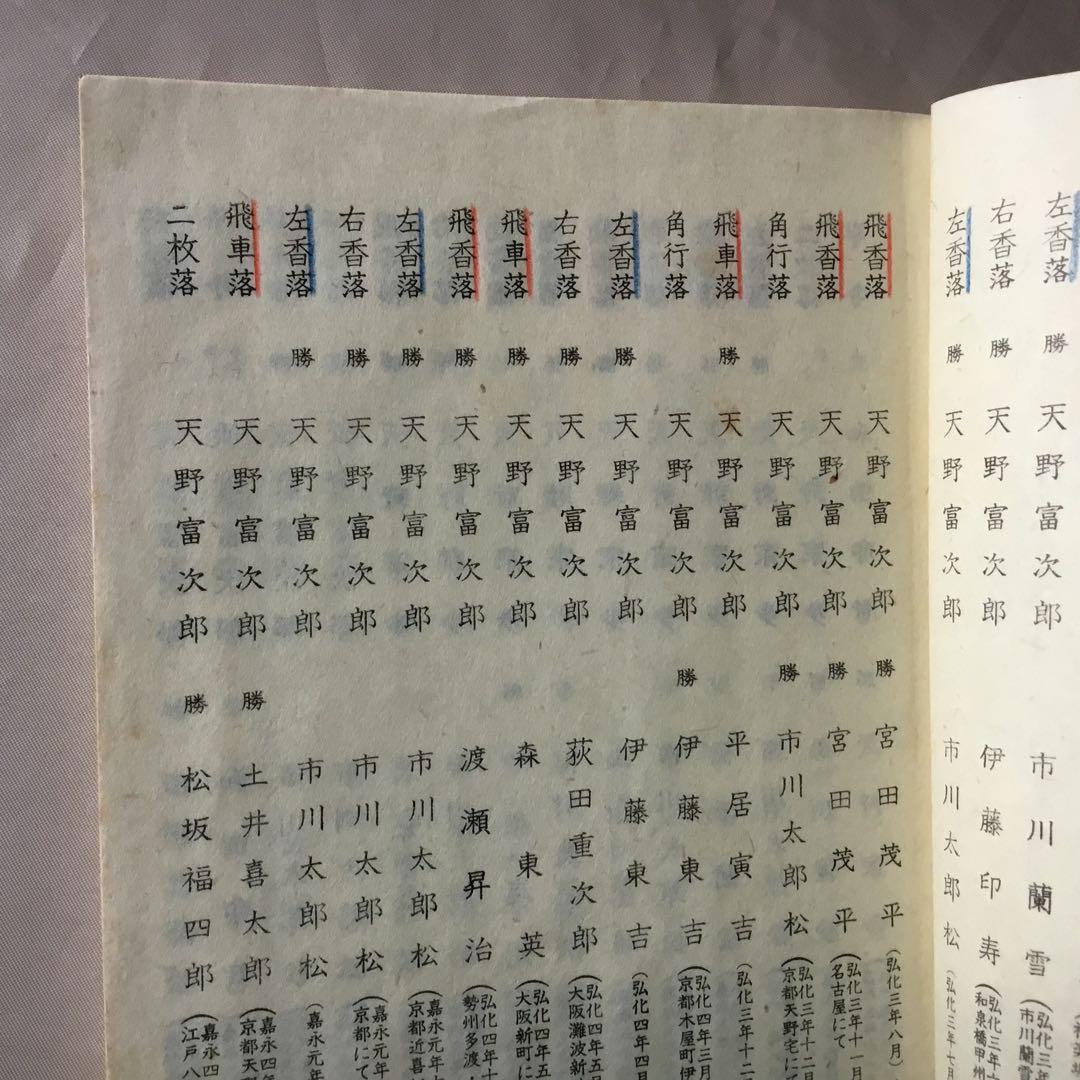 左香落 勝 天野富次郎 市川蘭雪 (弘化三年 市川蘭雪
右香落 勝 天野富次郎 伊藤印寿 (弘化三年 和泉橋甲州
左香落 勝 天野富次郎 市川太郎松 (弘化三年七月
飛香落 天野富次郎 勝 宮田茂平 (弘化三年八月)
飛香落 天野富次郎 勝 宮田茂平 (弘化三年十一月 名古屋にて
角行落 天野富次郎 勝 市川太郎松 (弘化三年十二月 京都天野宅にて
飛車落 勝 天野富次郎 平居寅吉 (弘化三年十二
角行落 天野富次郎 勝 伊藤東吉 (弘化四年三月 京都木屋町伊
左香落 勝 天野富次郎 伊藤東吉 (弘化四年三月
右香落 勝 天野富次郎 荻田重次郎 (弘化四年五月 大阪灘波新
飛車落 勝 天野富次郎 森東英 (弘化四年五 大阪新町に
飛香落 勝 天野富次郎 渡瀬昇治 (弘化四年十 勢州多渡
左香落 勝 天野富次郎 市川太郎松 (嘉永元年 京都近喜
右香落 勝 天野富次郎 市川太郎松 (嘉永元年 京都にて
左香落 勝 天野富次郎 市川太郎松 (嘉永元年
飛車落 天野富次郎 勝 土井喜太郎 (嘉永四年 京都天
二枚落 天野富次郎 勝 松坂福四郎 (嘉永四 江戸八